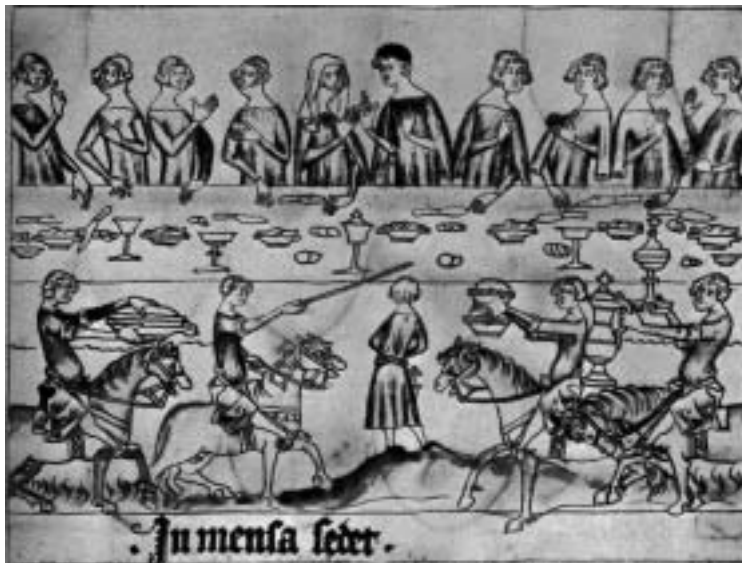 . In mensa sedet .